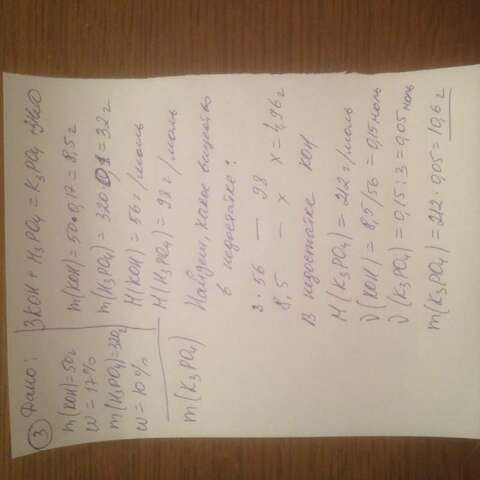 ③ Дано:
m(KOH)=50г
w=17%
m(H₃PO₄)=320г
w=10%
m(K₃PO₄)
3KOH + H₃PO₄ = K₃PO₄ + 3H₂O
m(KOH) = 50·0,17 = 8,5 г
m(H₃PO₄) = 320·0,1 = 32 г
M(KOH) = 56 г/моль
M(H₃PO₄) = 98 г/моль
Найдем, какое вещество
в недостатке?
3·56 — 98
8,5 — x x = 4,96 г
В недостатке KOH
M(K₃PO₄) = 212 г/моль
ν(KOH) = 8,5/56 = 0,15 моль
ν(K₃PO₄) = 0,15:3 = 0,05 моль
m(K₃PO₄) = 212·0,05 = 10,6 г